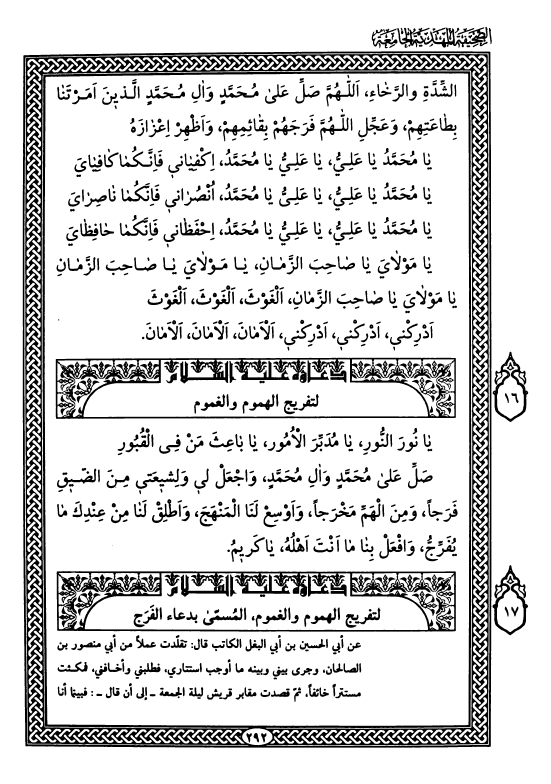 الصحيفة المهدية الجامعة
الشِّدَّةِ والرَّخٰاءِ، اَللّٰهُمَّ صَلِّ عَلىٰ مُحَمَّدٍ وَاٰلِ مُحَمَّدٍ الَّذينَ اَمَرْتَنٰا
بِطٰاعَتِهِمْ، وَعَجِّلِ اللّٰهُمَّ فَرَجَهُمْ بِقٰائِمِهِمْ، وَاَظْهِرْ اِعْزٰازَهُ
يٰا مُحَمَّدُ يٰا عَلِيُّ، يٰا عَلِيُّ يٰا مُحَمَّدُ، اِكْفِيٰاني فَاِنَّكُمٰا كٰافِيٰايَ
يٰا مُحَمَّدُ يٰا عَلِيُّ، يٰا عَلِيُّ يٰا مُحَمَّدُ، اُنْصُرٰاني فَاِنَّكُمٰا نٰاصِرٰايَ
يٰا مُحَمَّدُ يٰا عَلِيُّ، يٰا عَلِيُّ يٰا مُحَمَّدُ، اِحْفَظٰاني فَاِنَّكُمٰا حٰافِظٰايَ
يٰا مَوْلٰايَ يٰا صٰاحِبَ الزَّمٰانِ، يٰا مَوْلٰايَ يٰا صٰاحِبَ الزَّمٰانِ
يٰا مَوْلٰايَ يٰا صٰاحِبَ الزَّمٰانِ، اَلْغَوْثَ، اَلْغَوْثَ، اَلْغَوْثَ
اَدْرِكْني، اَدْرِكْني، اَدْرِكْني، اَلْاَمٰانَ، اَلْاَمٰانَ، اَلْاَمٰانَ.
دعاؤه عليه السلام
لتفريج الهموم والغموم
١٦
يٰا نُورَ النُّورِ، يٰا مُدَبِّرَ الْاُمُورِ، يٰا بٰاعِثَ مَنْ فِي الْقُبُورِ
صَلِّ عَلىٰ مُحَمَّدٍ وَاٰلِ مُحَمَّدٍ، وَاجْعَلْ لي وَلِشيعَتي مِنَ الضّيقِ
فَرَجاً، وَمِنَ الْهَمِّ مَخْرَجاً، وَاَوْسِعْ لَنَا الْمَنْهَجَ، وَاَطْلِقْ لَنٰا مِنْ عِنْدِكَ مٰا
يُفَرِّجُ، وَافْعَلْ بِنٰا مٰا اَنْتَ اَهْلُهُ، يٰا كَريمُ.
دعاؤه عليه السلام
لتفريج الهموم والغموم، المُسمّىٰ بدعاء الفَرَج
١٧
عن أبي الحسين بن أبي البغل الكاتب قال: تقلّدت عملاً من أبي منصور بن
الصالحان، وجرى بيني وبينه ما أوجب استتاري، فطلبني وأخافني، فمكثت
مستتراً خائفاً، ثمّ قصدت مقابر قريش ليلة الجمعة ـ إلى أن قال ـ : فبينما أنا
٢٩٢